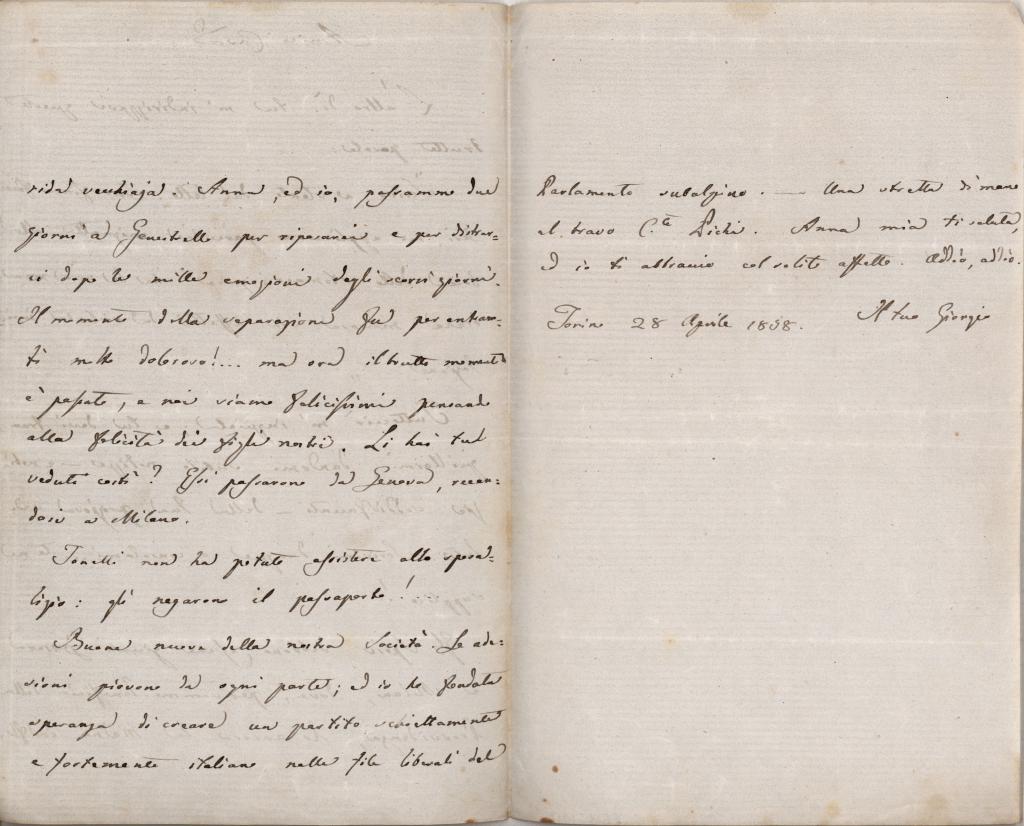 rida vecchiaja. Anna, ed io, passammo due
giorni a Genestrello per riposarci e per distrar=
ci dopo le mille emozioni degli scorsi giorni.
Il momento della separazione fu per entram=
bi molto doloroso!... ma ora il brutto momento
è passato, e noi siamo felicissimi pensando
alla felicità dei figli nostri. Li hai tu
veduti costì? Essi passarono da Genova, recan=
dosi a Milano.
Tonelli non ha potuto assistere allo sposa=
lizio: gli negarono il passaporto!...
Buone nuove della nostra Società. Le ade=
sioni piovono da ogni parte; ed io ho fondata
speranza di creare un partito schiettamente
e fortemente italiano nelle file liberali del
Parlamento subalpino. — Una stretta di mano
al bravo C.te Pichi. Anna mia ti saluta,
ed io ti abbraccio col solito affetto. Addio, addio.
Torino 28 Aprile 1858. Il tuo Giorgio